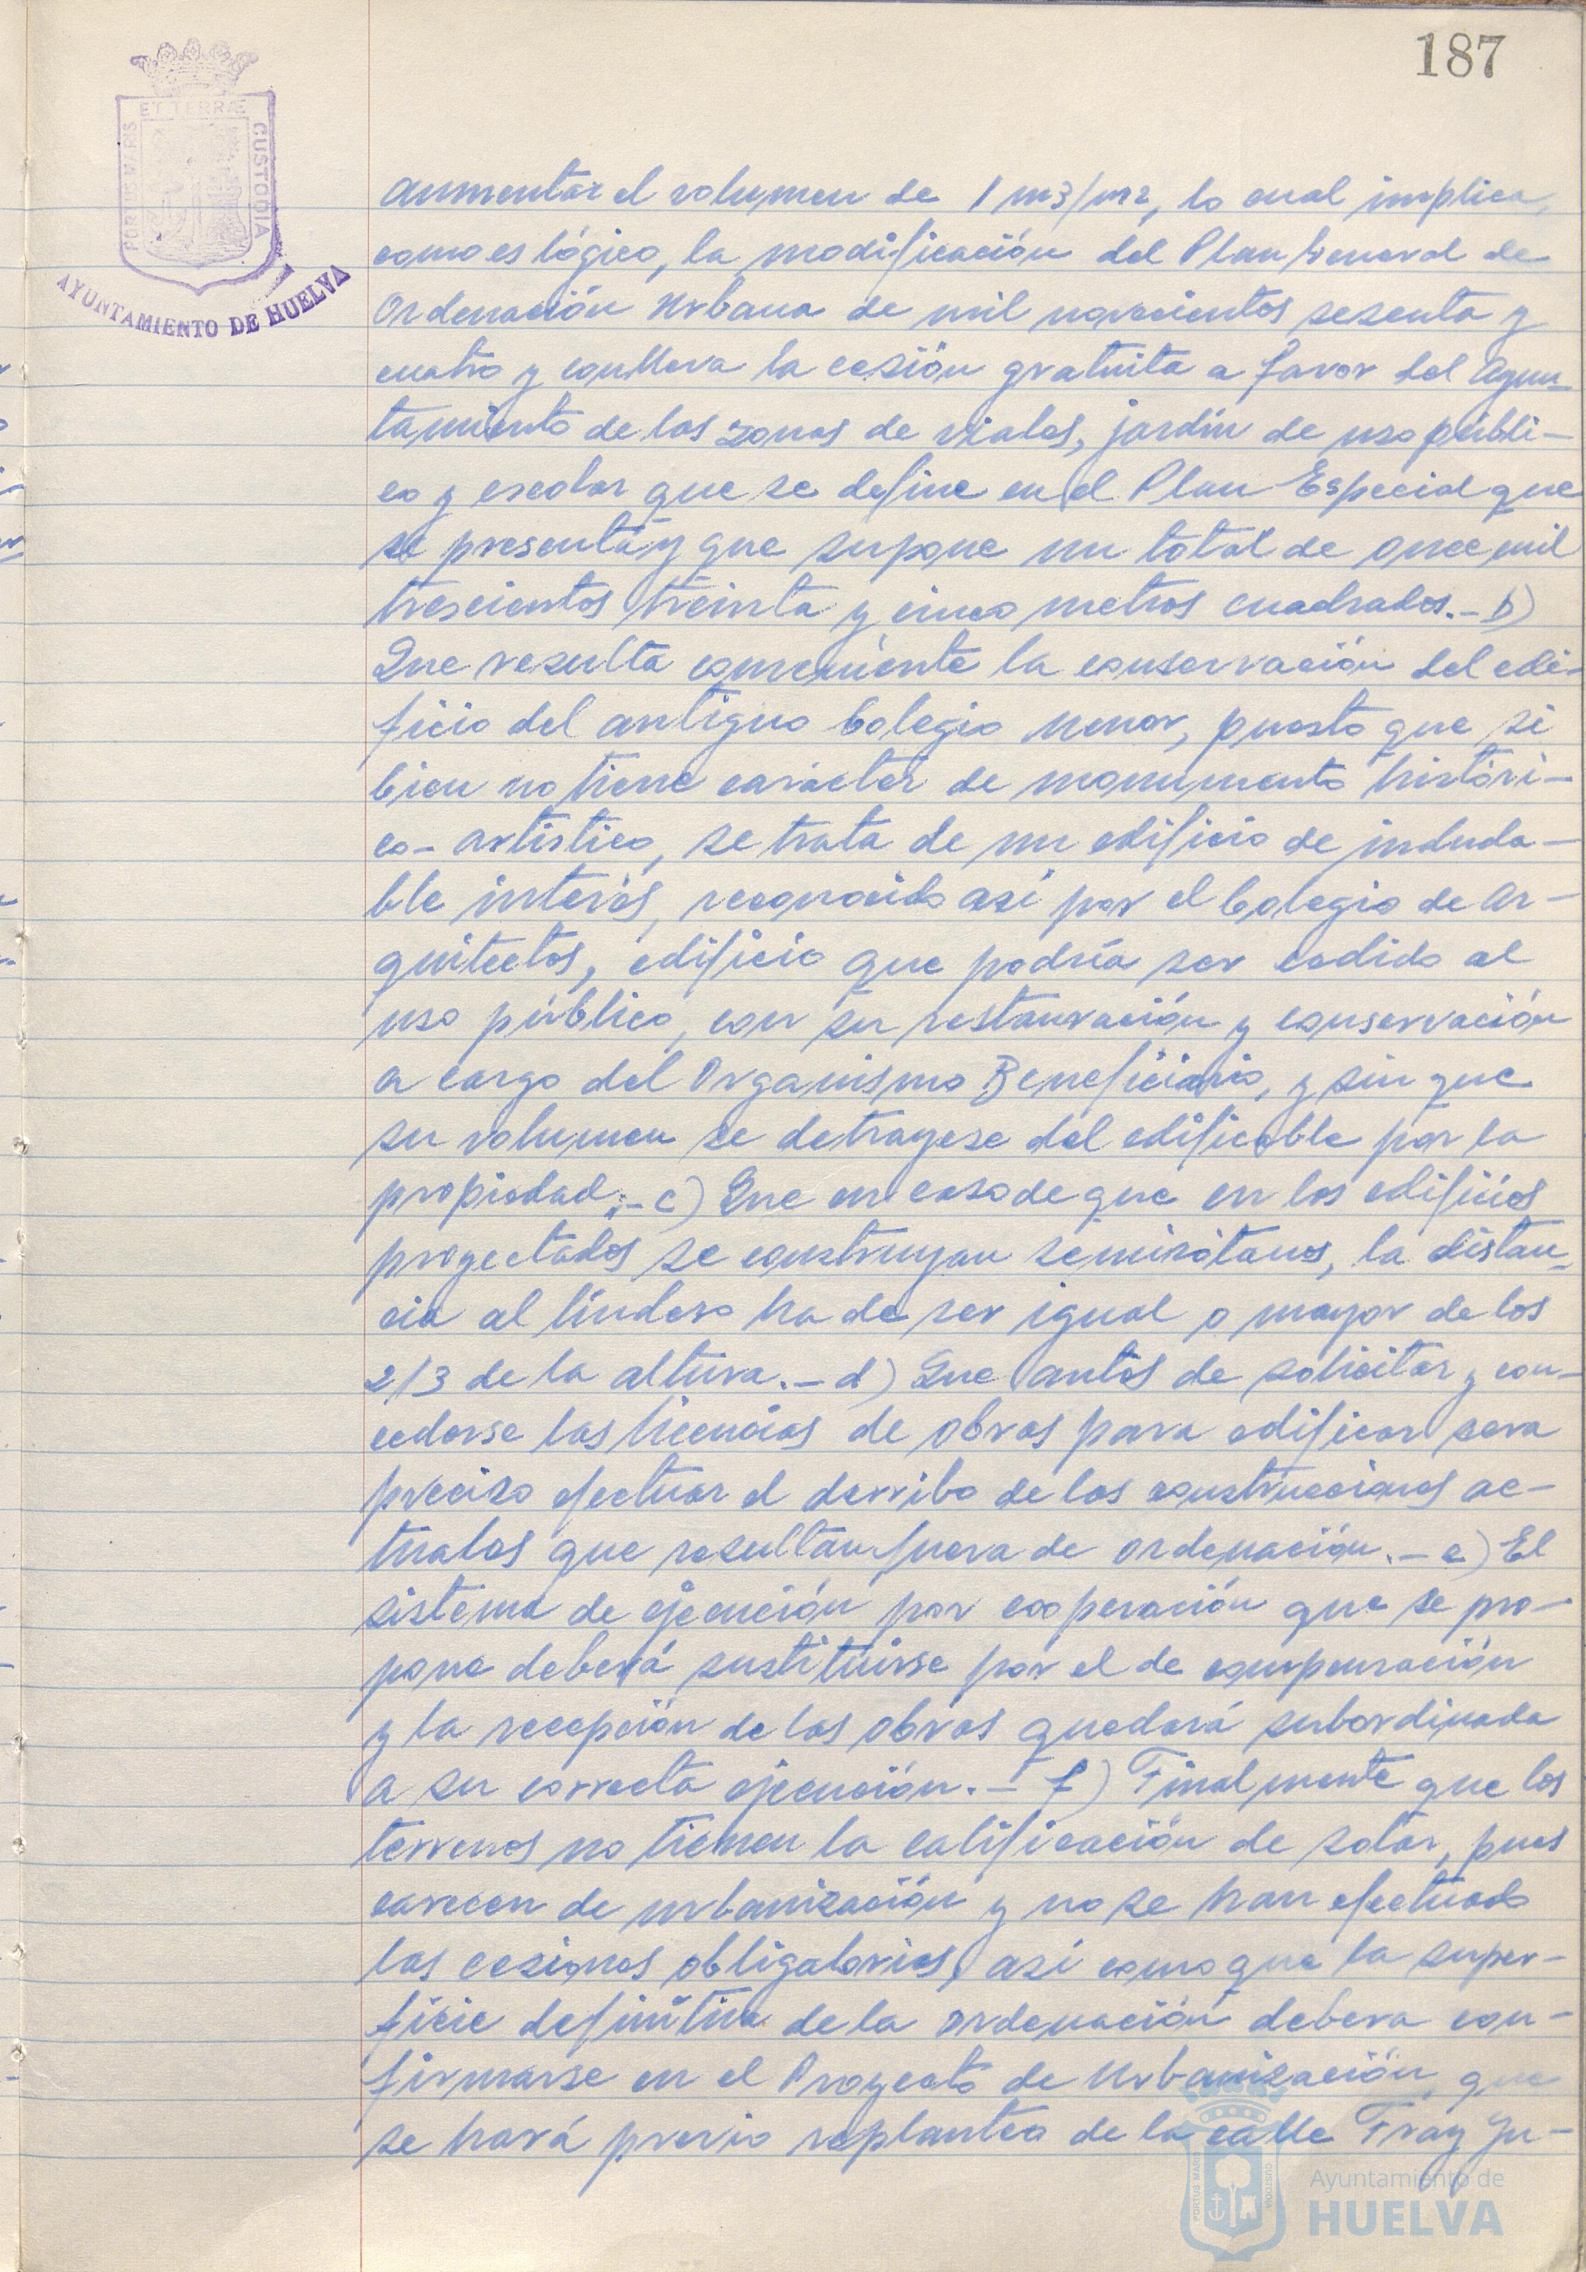 187
PORTUS MARIS
ET TERRÆ
CUSTODIA
AYUNTAMIENTO DE HUELVA
aumentar el volumen de 1 m3/m2, lo cual implica,
como es lógico, la modificación del Plan General de
Ordenación Urbana de mil novecientos sesenta y
cuatro y conlleva la cesión gratuita a favor del Ayun-
tamiento de las zonas de viales, jardín de uso públi-
co y escolar que se define en el Plan Especial que
se presenta y que supone un total de once mil
trescientos treinta y cinco metros cuadrados.- b)
Que resulta conveniente la conservación del edi-
ficio del antiguo Colegio Menor, puesto que si
bien no tiene carácter de monumento históri-
co-artístico, se trata de un edificio de induda-
ble interés, reconocido así por el Colegio de Ar-
quitectos, edificio que podría ser cedido al
uso público, con su restauración y conservación
a cargo del Organismo Beneficiario, y sin que
su volumen se detrayese del edificable por la
propiedad;- c) Que en caso de que en los edificios
proyectados se construyan semisótanos, la distan-
cia al lindero ha de ser igual o mayor de los
2/3 de la altura.- d) Que antes de solicitar y con-
cederse las licencias de obras para edificar sera
preciso efectuar el derribo de las construcciones ac-
tuales que resultan fuera de ordenación.- e) El
sistema de ejecución por cooperación que se pro-
pone deberá sustituirse por el de compensación
y la recepción de las obras quedará subordinada
a su correcta ejecución.- f) Finalmente que los
terrenos no tienen la calificación de solar, pues
carecen de urbanización y no se han efectuado
las cesiones obligatorias, así como que la super-
ficie definitiva de la ordenación debera con-
firmarse en el Proyecto de Urbanización, que
se hará previo replanteo de la calle Fray Ju-
PORTUS MARIS
CUSTODIA
Ayuntamiento de
HUELVA